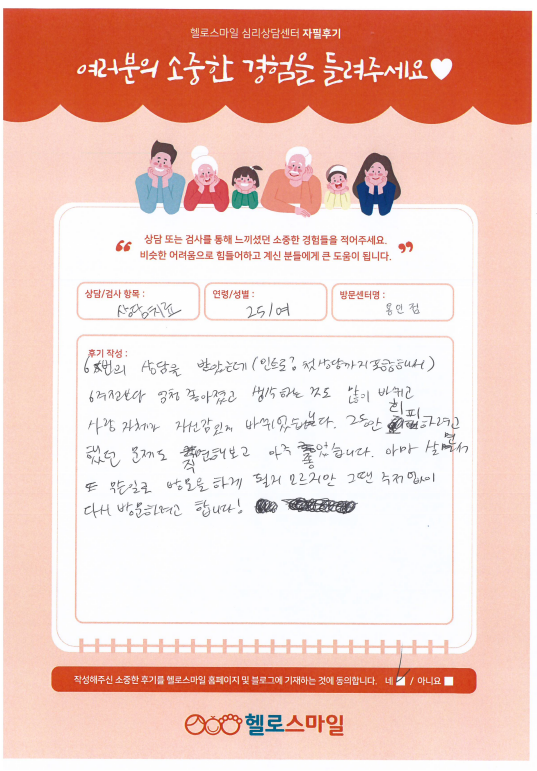 헬로스마일 심리상담센터 자필후기
여러분의 소중한 경험을 들려주세요
상담 또는 검사를 통해 느끼셨던 소중한 경험들을 적어주세요.
비슷한 어려움으로 힘들어하고 계신 분들에게 큰 도움이 됩니다.
상담/검사 항목 :
상담치료
연령/성별 :
25/여
방문센터명 :
용인점
후기 작성 :
6번의 상담을 받았는데(인트로랑 첫상담까지 포함해서)
6주전보다 엄청 좋아졌고 생각하는 것도 많이 바뀌고
사람 자체가 자신감있게 바뀌었습니다. 그동안 회피하려고
했던 문제도 직면해보고 아주 좋았습니다. 아마 살면서
또 무슨일로 방문을 하게 될지 모르지만 그땐 주저없이
다시 방문하려고 합니다!
작성해주신 소중한 후기를 헬로스마일 홈페이지 및 블로그에 기재하는 것에 동의합니다. 네 / 아니요
헬로스마일